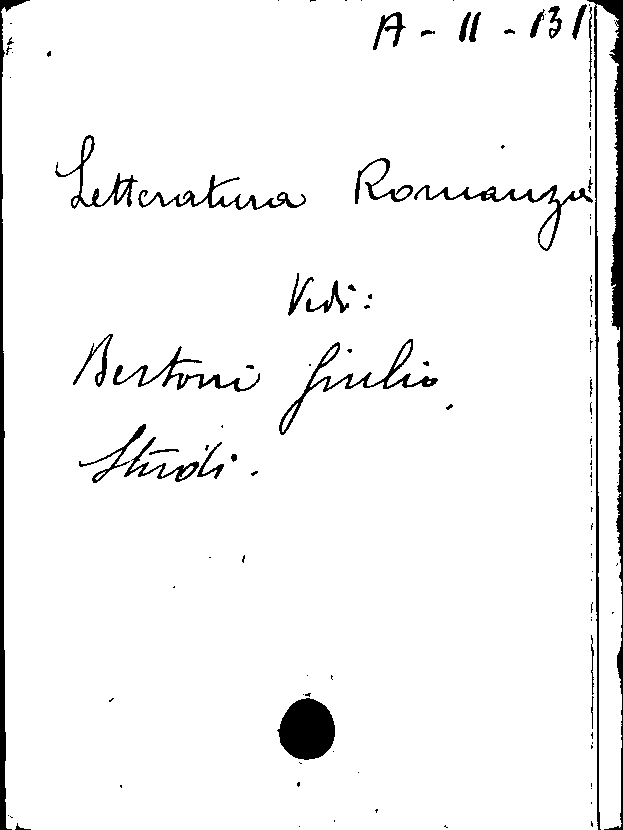 A - II - 131
Letteratura Romanza
Vedi:
Bertoni Giulio.
Studi.